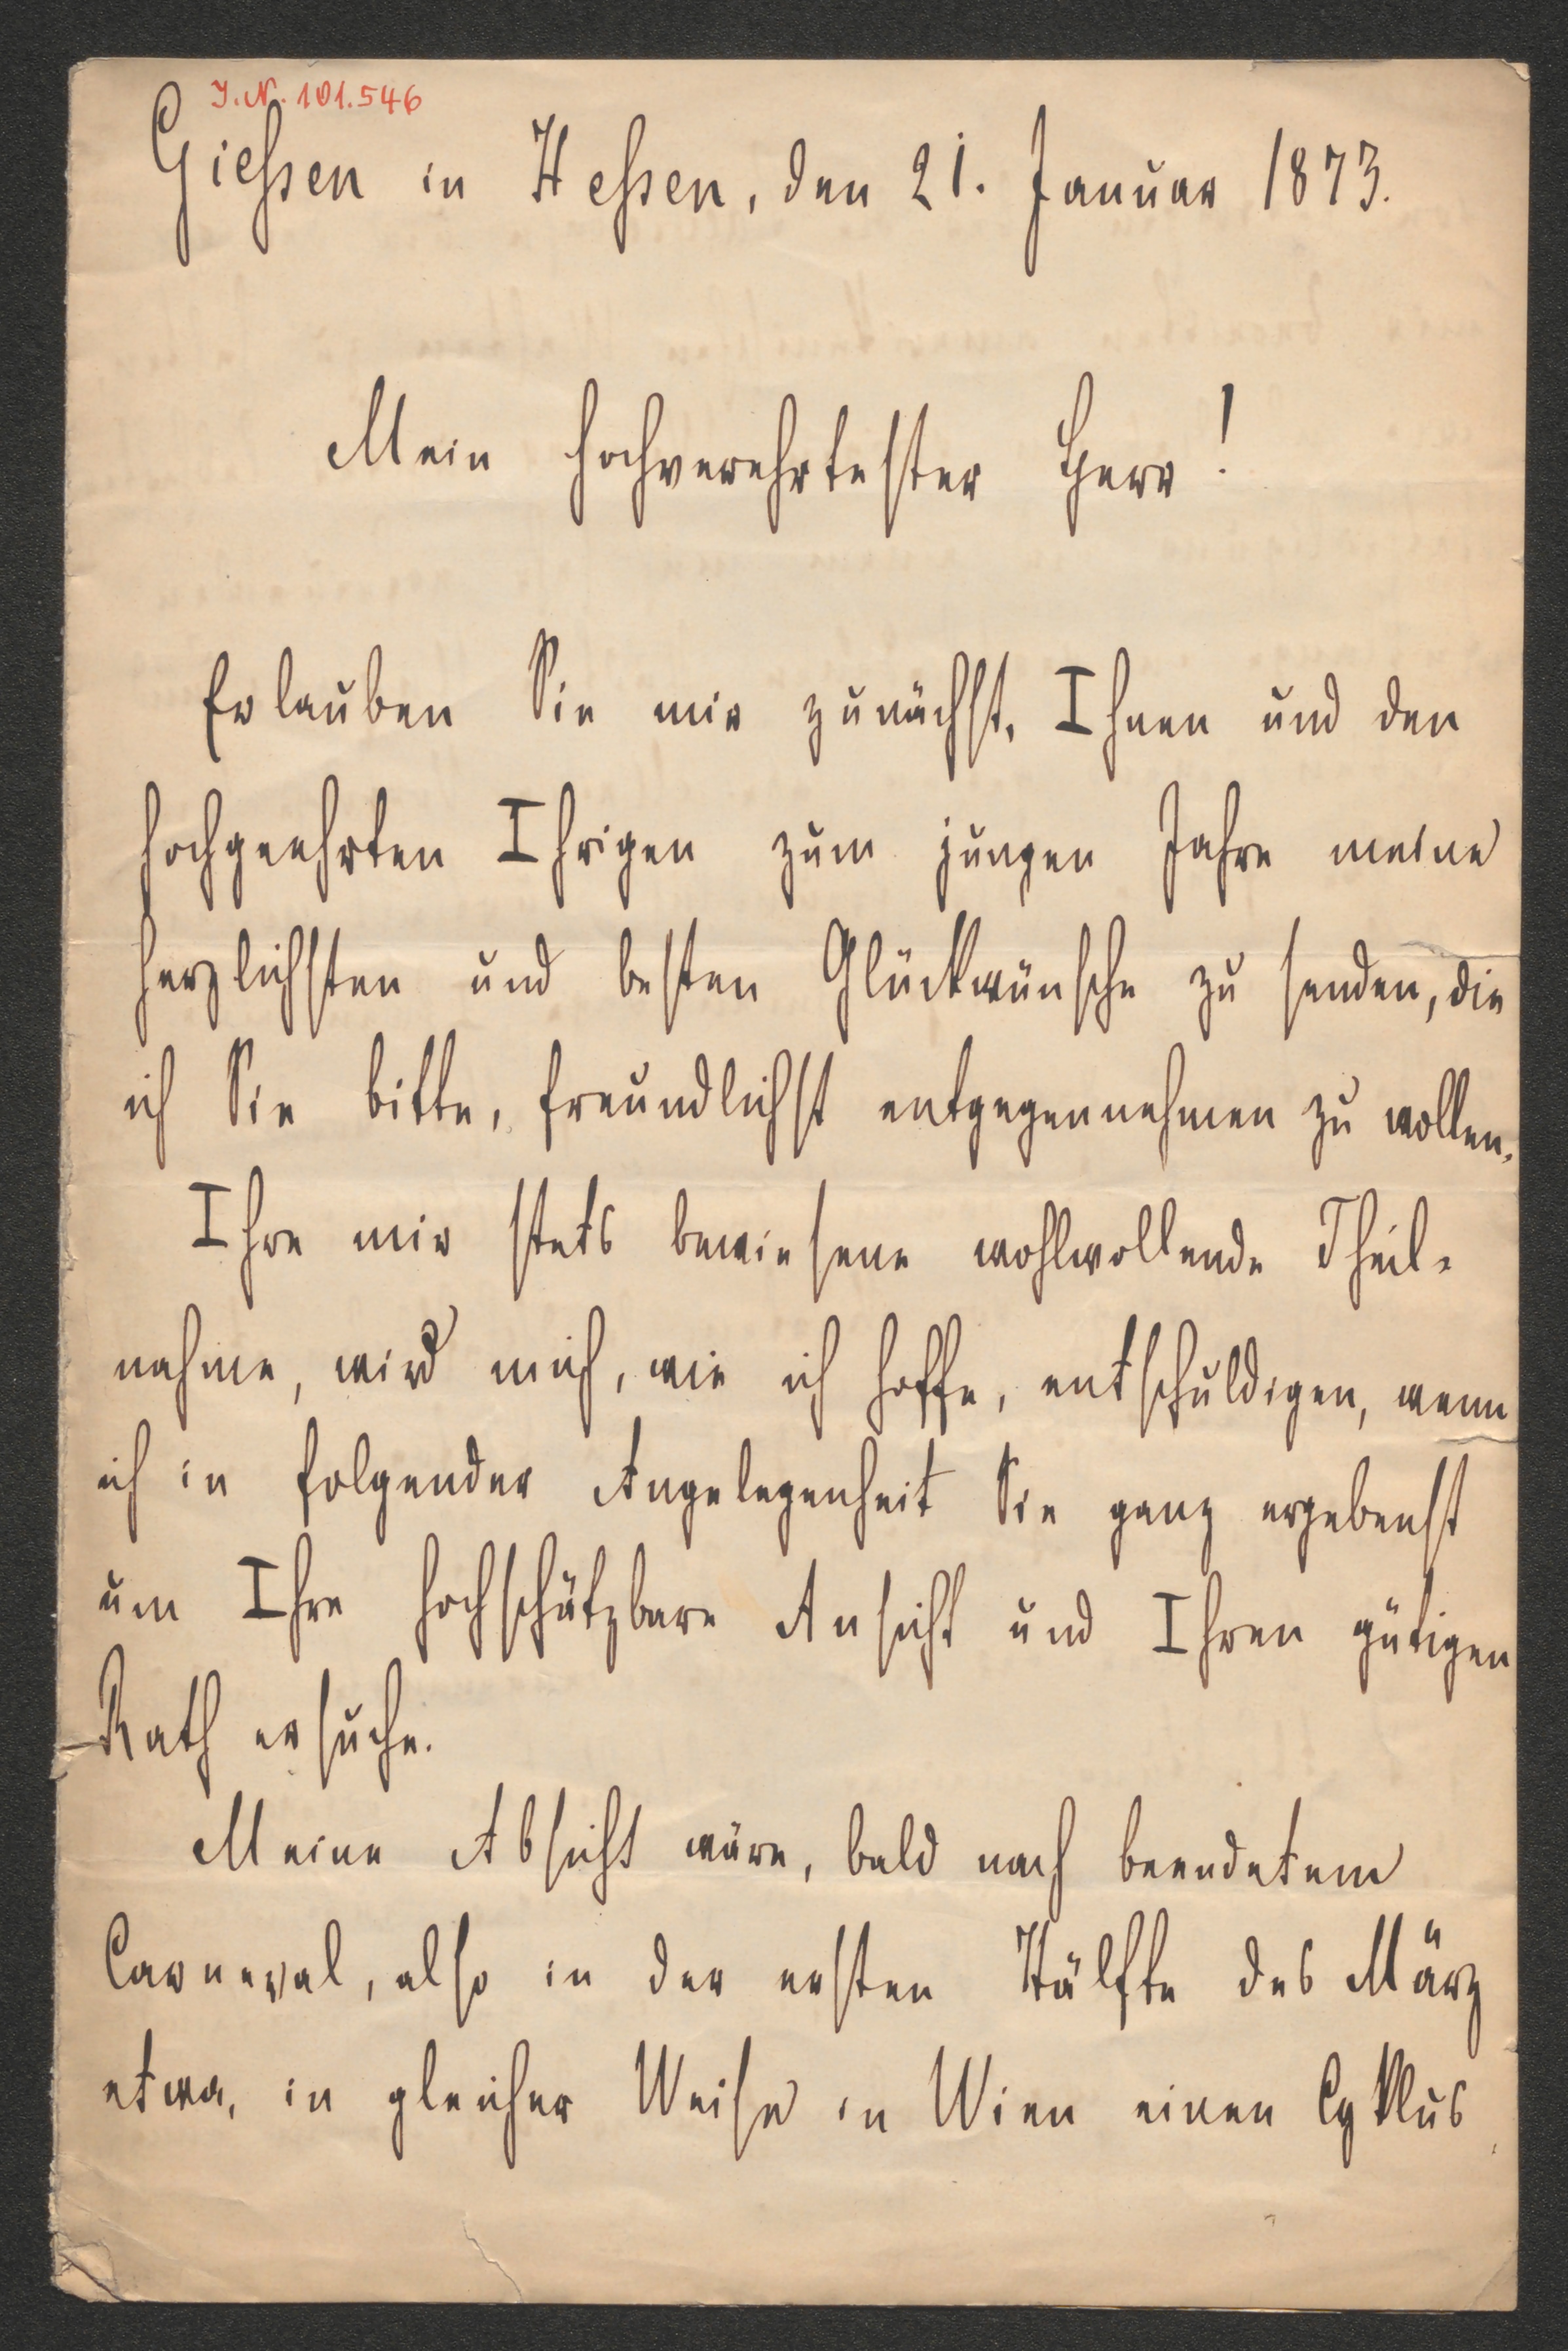 J.N. 101.546
Gießen in Heßen, den 21. Januar 1873.
Mein hochverehrtester Herr!
Erlauben Sie mir zunächst, Ihnen und den
hochgeehrten Ihrigen zum jungen Jahre meine
herzlichsten und besten Glückwünsche zu senden, die
ich Sie bitte, freundlichst entgegennehmen zu wollen.
Ihre mir stets bewiesene wohlwollende Theil-
nahme, wird mich, wie ich hoffe, entschuldigen, wenn
ich in folgender Angelegenheit Sie ganz ergebenst
um Ihre hochschätzbare Ansicht und Ihren gütigen
Rath ersuche.
Meine Absicht wäre, bald nach beendetem
Carneval, also in der ersten Hälfte des März
etwa, in gleicher Weise in Wien einen Cyklus